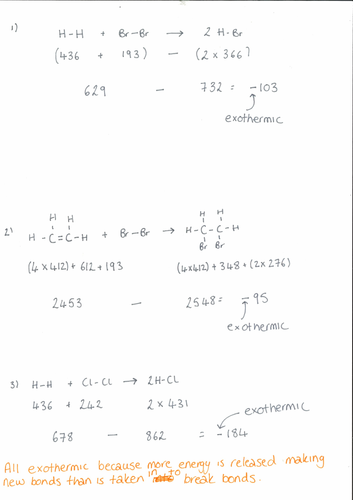 1)
H-H + Br-Br → 2 H-Br
(436 + 193) - (2 x 366)
629 - 732 = -103
exothermic
H H H H
2) H-C=C-H + Br-Br → H-C-C-H
Br Br
(4 x 412) + 612 + 193 (4 x 412) + 348 + (2 x 276)
2453 - 2548 = -95
exothermic
3) H-H + Cl-Cl → 2H-Cl
436 + 242 2 x 431
exothermic
678 - 862 = -184
All exothermic because more energy is released making
new bonds than is taken in to break bonds.